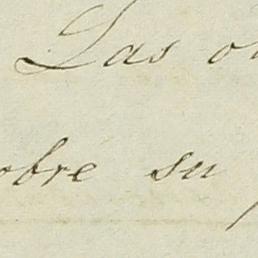 Las o
obre su